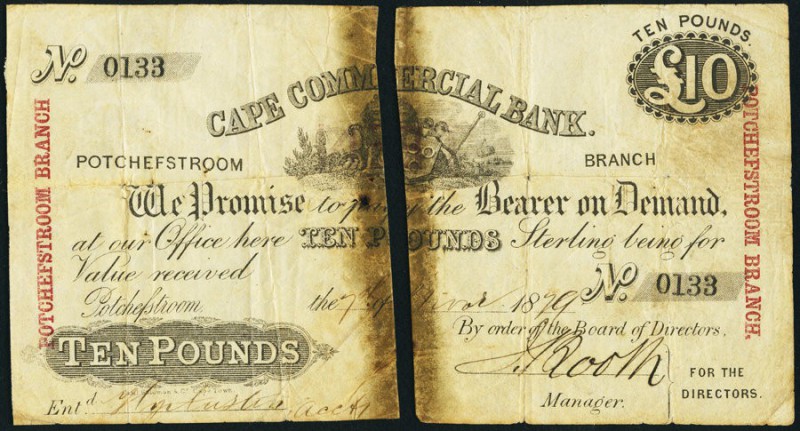 TEN POUNDS.
£10
No. 0133
CAPE COMMERCIAL BANK.
POTCHEFSTROOM BRANCH
POTCHEFSTROOM BRANCH
POTCHEFSTROOM BRANCH.
We Promise to pay the Bearer on Demand,
at our Office here TEN POUNDS Sterling being for
Value received
No. 0133
Potchefstroom, the 7th of 1879
By order of the Board of Directors.
TEN POUNDS
FOR THE
DIRECTORS.
Entd. acct
Manager.